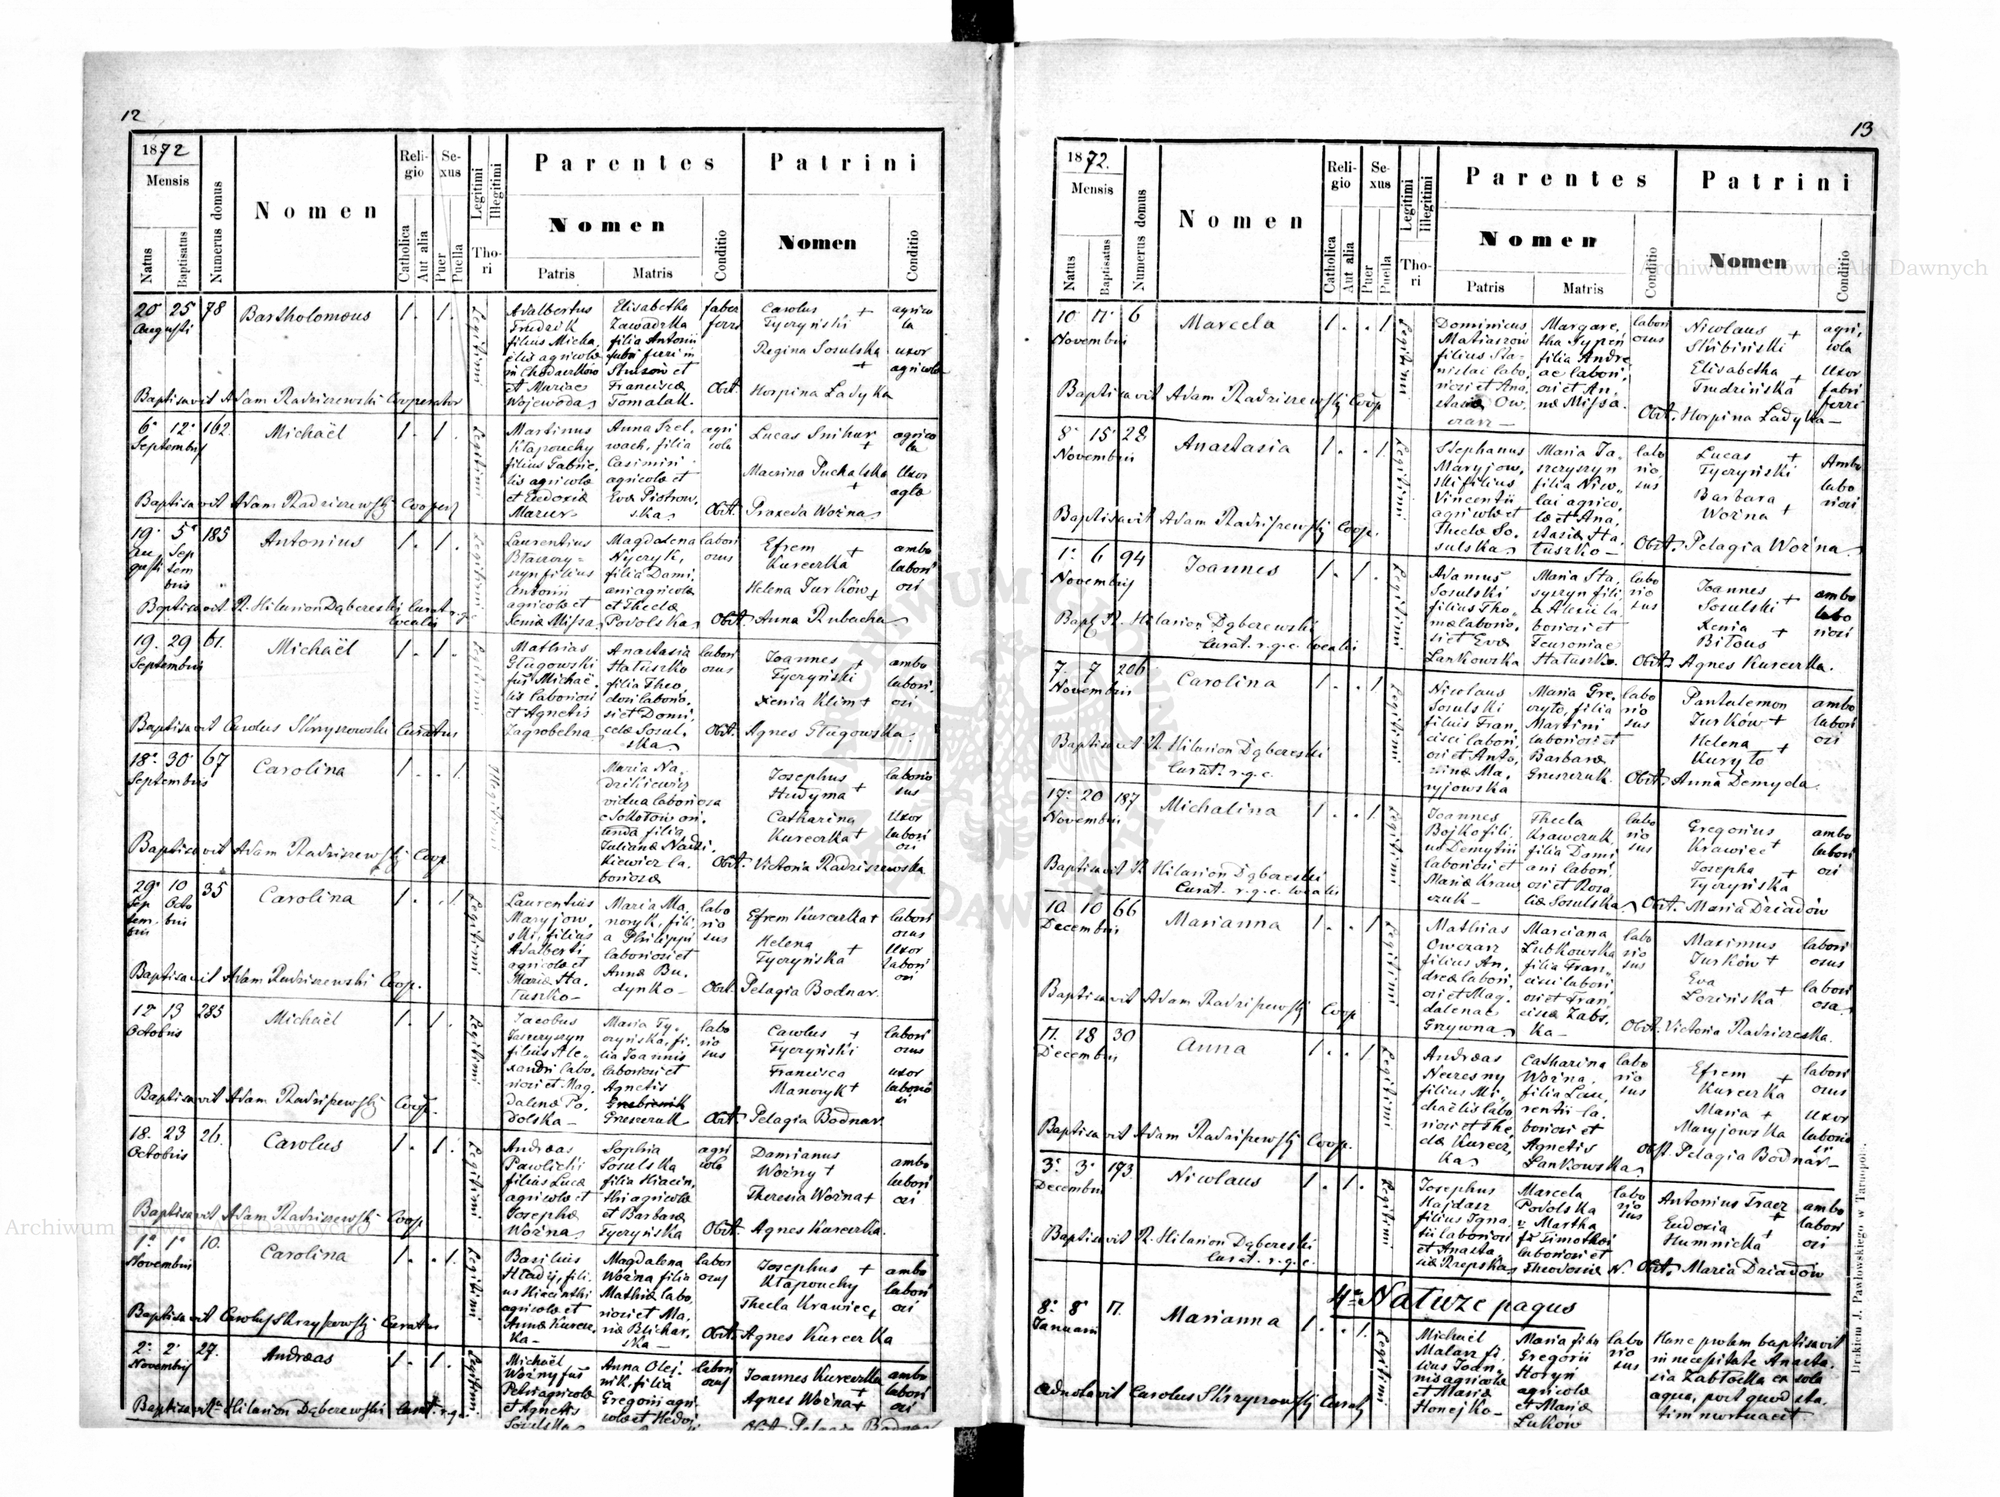 12
1872
Mensis
Natus
Baptisatus
Numerus domus
Nomen
Religio
Catholica
Aut alia
Sexus
Puer
Puella
Legitimi
Illegitimi
Thori
Parentes
Nomen
Patris
Matris
Conditio
Patrini
Nomen
Conditio
20 25 78 Bartholomæus 1. 1. Legitimi
Augusti
Adalbertus
Trudzik
filius Micha
elis agricolæ
in Chodaczków
et Mariae
Wojewoda
Elisabetha
Zawadzka
filia Antonii
fabri ferri in
et
Franciscæ
Tomalak.
faber
ferri
Carolus +
Tyczyński
Regina Sosulska
+
Obst. Horpina Ladyka
agrico
la
uxor
agricolæ
Baptisavit Adam Radziszewski Cooperator
6 12 162. Michaël 1. 1. Legitimi
Septembris
Martinus
Kłapouchy
filius Gabrie
lis agricolæ
et Eudoxiæ
Mazur
filia
Casimiri
agricolæ et
Evæ Piotrow
ska
agri
cola
Lucas Snihur
+
Macrina Puchalska
+
Obst. Praxeda Woźna
agrico
la
Uxor
aglæ
Baptisavit Adam Radziszewski Cooper
19 5 185 Antonius 1. 1. Legitimi
au Sep
gusti tem
bris
Laurentius
filius
Antonii
agricolæ et
Xeniæ Missa
Magdalena
filia Dami
ani agricolæ
et Theclæ
Podolska
labori
osus
Efrem +
Kureczka
Helena Turków +
Obst. Anna Rubacha
ambo
labori
osi
Baptisavit R. Hilarion Dąberewski Curat. r. g. c.
localis
19. 29 61. Michaël 1. 1. Legitimi
Septembris
Mathias
Gługowski
fus Michaë
lis laboriosi
et Agnetis
Zagrobelna
Anastasia
Hatuszko
filia Theo
dori laborio
si et Domi
celæ Sosul
ska
labori
osus
Joannes +
Tyczyński
Xenia Klim +
Obst. Agnes Gługowska
ambo
labori
osi
Baptisavit Carolus Skrzyszowski Curatus
18 30 67 Carolina 1. . 1. Illegitimi
Septembris
Maria Na
dzikiewicz
vidua laboriosa
e Sokołow ori
unda filia
Julianæ
kiewicz la
boriosæ
Josephus
Hudyma +
Catharina
Kureczka +
Obst. Victoria Radziszewska
laborio
sus
Uxor
labori
osi
Baptisavit Adam Radziszewski Coop.
29 10 35 Carolina 1. . 1 Legitimi
Sep Octo
tem bris
bris
Laurentius
Maryjow
ski, filius
Adalberti
agricolæ et
Mariæ Ha
tuszko
Maria Ma
noryk, fili
a Philippi
laboriosi et
Annæ Bu
dynko
labo
rio
sus
Efrem Kureczka +
Helena
Tyczyńska +
Obst. Pelagia Bodnar.
labori
osus
Uxor
labori
osi
Baptisavit Adam Radziszewski Coop.
12 13 283 Michaël 1. 1. Legitimi
Octobris
Jacobus
Jaszczyszyn
filius Ale
xandri labo
riosi et Mag
dalenæ Po
dolska
Maria Ty
czyńska, fi
lia Joannis
laboriosi et
Agnetis
Greszczuk
labo
rio
sus
Carolus +
Tyczyński
Francisca
Manoryk +
Obst. Pelagia Bodnar.
labori
osus
uxor
laborio
si
Baptisavit Adam Radziszewski Coop.
18. 23 26. Carolus 1. 1. Legitimi
Octobris
Andreas
Pawlicki
filius Lucæ
agricolæ et
Josephæ
Woźna
Sophia
Sosulska
filia Hiacin
thi agricolæ
et Barbaræ
Tyczyńska
agri
cola
Damianus
Woźny +
Theresia Woźna +
Obst. Agnes Kureczka.
ambo
labori
osi
Baptisavit Adam Radziszewski Coop
1 1 10. Carolina 1. . 1. Legitimi
Novembris
Basilius
Hladij, fili
us Hiacinthi
agricolæ et
Annæ Kurecz
ka
Magdalena
Woźna filia
Mathiæ labo
riosi et Ma
riæ Blichar
ska
labori
osus
Josephus +
Kłapouchy
Thecla Krawiec +
Obst. Agnes Kureczka
ambo
labori
osi
Baptisavit Carolus Skrzyszowski Curatus
2 2 27. Andreas 1. 1. Legitimi
Novembris
Michaël
Woźny fus
Petri agricolæ
et Agnetis
Sosulska
Anna Olej
nik, filia
Gregorii agri
colæ et
labori
osus
Joannes Kureczka
Agnes Woźna +
Obst. Pelagia Bodnar
ambo
labori
osi
Baptisavit R. Hilarion Dąberewski Curat. r. g. c.
13
1872.
Mensis
Natus
Baptisatus
Numerus domus
Nomen
Religio
Catholica
Aut alia
Sexus
Puer
Puella
Legitimi
Illegitimi
Thori
Parentes
Nomen
Patris
Matris
Conditio
Patrini
Nomen
Conditio
10 17 6 Marcela 1. . 1 Legitimi
Novembris
Dominicus
Matiaszow
filius Sta
nislai labo
riosi et Ana
stasiæ Ow
czarz
Margare
tha Sypeń
filia Andre
ae labori
osi et An
næ Missa.
labori
osus
Nicolaus +
Skibiński
Elisabetha
Trudzińska +
Obst. Horpina Ladyka
agri
cola
Uxor
fabri
ferri
Baptisavit Adam Radziszewski Coop
8 15 28 Anastasia 1. . 1. Legitimi
Novembris
Stephanus
Maryjow
ski filius
Vincentii
agricolæ et
Theclæ So
sulska
Maria Ja
szczyszyn
filia Nico
lai agrico
læ et Ana
stasiæ Ha
tuszko
labo
rio
sus
Lucas +
Tyczyński
Barbara
Woźna +
Obst. Pelagia Woźna
Ambo
labo
riosi
Baptisavit Adam Radziszewski Coop.
1 6 94 Joannes 1. 1. Legitimi
Novembris
Adamus
Sosulski
filius Tho
mæ laborio
si et Evæ
Lankowska
Maria Sta
syszyn fili
a Alexii la
boriosi et
Feuroniae
Hatuszko.
labo
rio
sus
Joannes
Sosulski +
Xenia
Bitous +
Obst. Agnes Kureczka.
ambo
labo
riosi
Bapt. R. Hilarion Dąberewski
Curat. r. g. c. localis
7 7 206 Carolina 1. . 1 Legitimi
Novembris
Nicolaus
Sosulski
filius Fran
cisci labori
osi et Anto
ninæ Ma
ryjowska
Maria Gre
filia
Martini
laboriosi et
Barbaræ
Greszczuk.
labo
rio
sus
Pantalemon
Turków +
Helena +
Kuryło
Obst. Anna Demyda
ambo
labori
osi
Baptisavit R. Hilarion Dąbereski
Curat. r. g. c.
17 20 187 Michalina 1. . 1 Legitimi
Novembris
Joannes
Bojko fili
us Demytrii
laboriosi et
Mariæ Kraw
czuk
Thecla
Krawczuk
filia Dami
ani labori
osi et Rosa
liæ Sosulska
labo
rio
sus
Gregorius
Krawiec +
Josepha +
Tyczyńska
Obst. Maria Dziadów
ambo
labori
osi
Baptisavit R. Hilarion Dąbereski
Curat. r. g. c. localis
10 10 66 Marianna 1. . 1 Legitimi
Decembris
Mathias
Owczarz
filius An
dreæ labori
osi et Mag
dalenae
Grzywna
Marciana
Lubkowska
filia Fran
cisci labori
osi et Fran
ciscæ Zabs
ka
labo
rio
sus
Maximus
Turków +
Eva +
Lozińska
Obst. Victoria Radziszeska.
labori
osus
labori
osa
Baptisavit Adam Radziszewski Coop
17. 28 30 Anna 1. . 1 Legitimi
Decembris
Andreas
filius Mi
chaëlis labo
riosi et The
clæ Kurecz
ka
Catharina
Woźna
filia Lau
rentii la
boriosi et
Agnetis
Lankowska
labo
rio
sus
Efrem +
Kureczka
Maria +
Maryjowska
Obst. Pelagia Bodnar
labori
osus
Uxor
laborio
si
Baptisavit Adam Radziszewski Coop.
3 3 193 Nicolaus 1. 1. Legitimi
Decembris
Josephus
Kajdasz
filius Igna
tii laboriosi
et Anasta
siæ Rzepska
Marcela
Podolska
v. Martha
fa Timothei
laboriosi et
Theodosiæ N.
labo
rio
sus
Antonius Tracz
+
Eudoxia
Humnicka +
Obst. Maria Dziadów
ambo
labori
osi
Baptisavit R. Hilarion Dąbereski
Curat. r. g. c.
4to Natuze pagus
8 8 17. Marianna 1. . 1. Legitimi
Januarii
Michaël
Malarz fi
lius Joan
nis agricolæ
et Mariæ
Honejko
Maria filia
Gregorii
Horyn
agricolæ
et Mariæ
Luków
labo
rio
sus
Hanc prolem baptisavit
in necessitate Anasta
sia Zabłocka ex sola
aqua, post quod sta
tim mortua est
Adnotavit Carolus Skrzyszowski Curatus
Drukiem J. Pawłowskiego w Tarnopolu.
Archiwum Główne Akt Dawnych
Archiwum Główne Akt Dawnych
ARCHIWUM GŁÓWNE AKT DAWNYCH